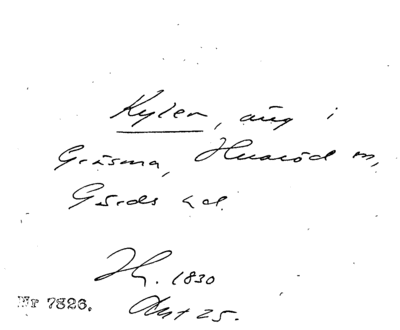 Kylen, äng i
Gräsma, Huaröd sn,
Gärds hd
H. 1830
Akt 25.
Nr 7826.